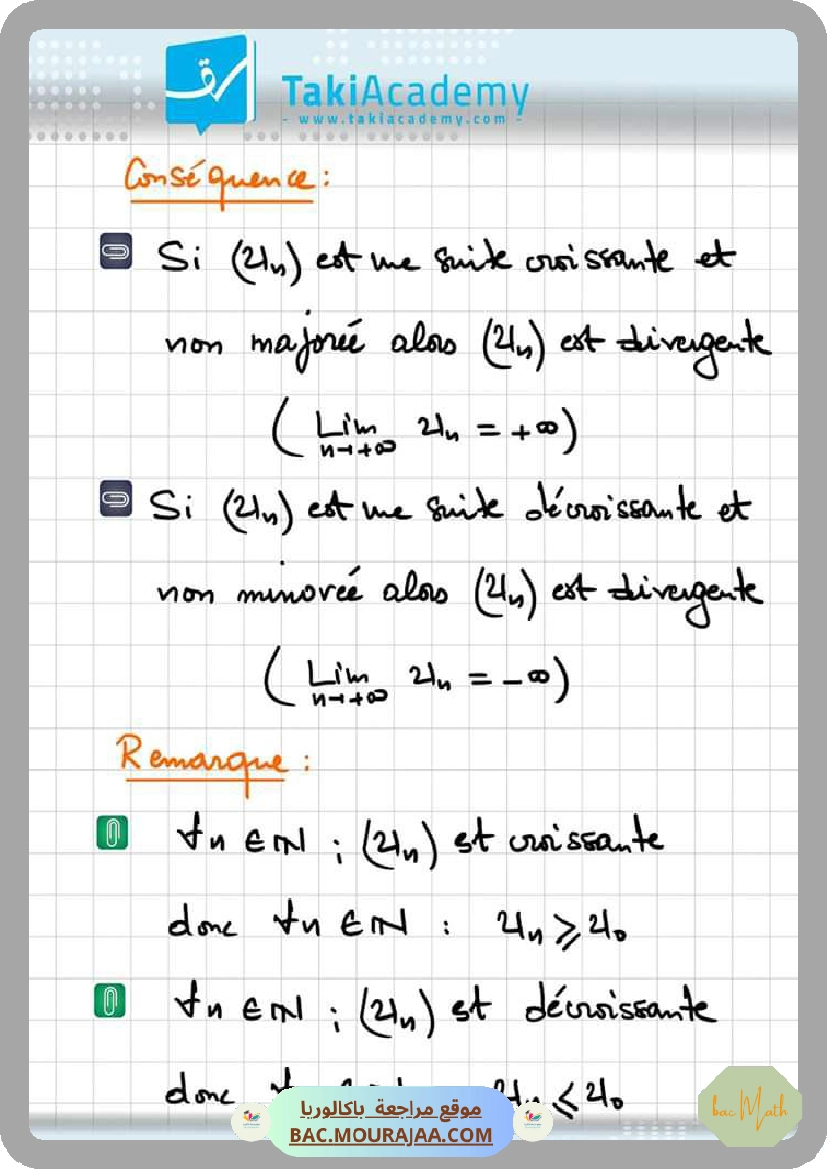 TakiAcademy
- www.takiacademy.com -
Conséquence :
Si (Un) est une suite croissante et
non majorée alors (Un) est divergente
( Lim n→+∞ Un = +∞ )
Si (Un) est une suite décroissante et
non minorée alors (Un) est divergente
( Lim n→+∞ Un = -∞ )
Remarque :
∀n ∈ IN ; (Un) est croissante
donc ∀n ∈ IN : Un ≥ U0
∀n ∈ IN ; (Un) est décroissante
donc Un ≤ U0
موقع مراجعة باكالوريا
BAC.MOURAJAA.COM
bac Math